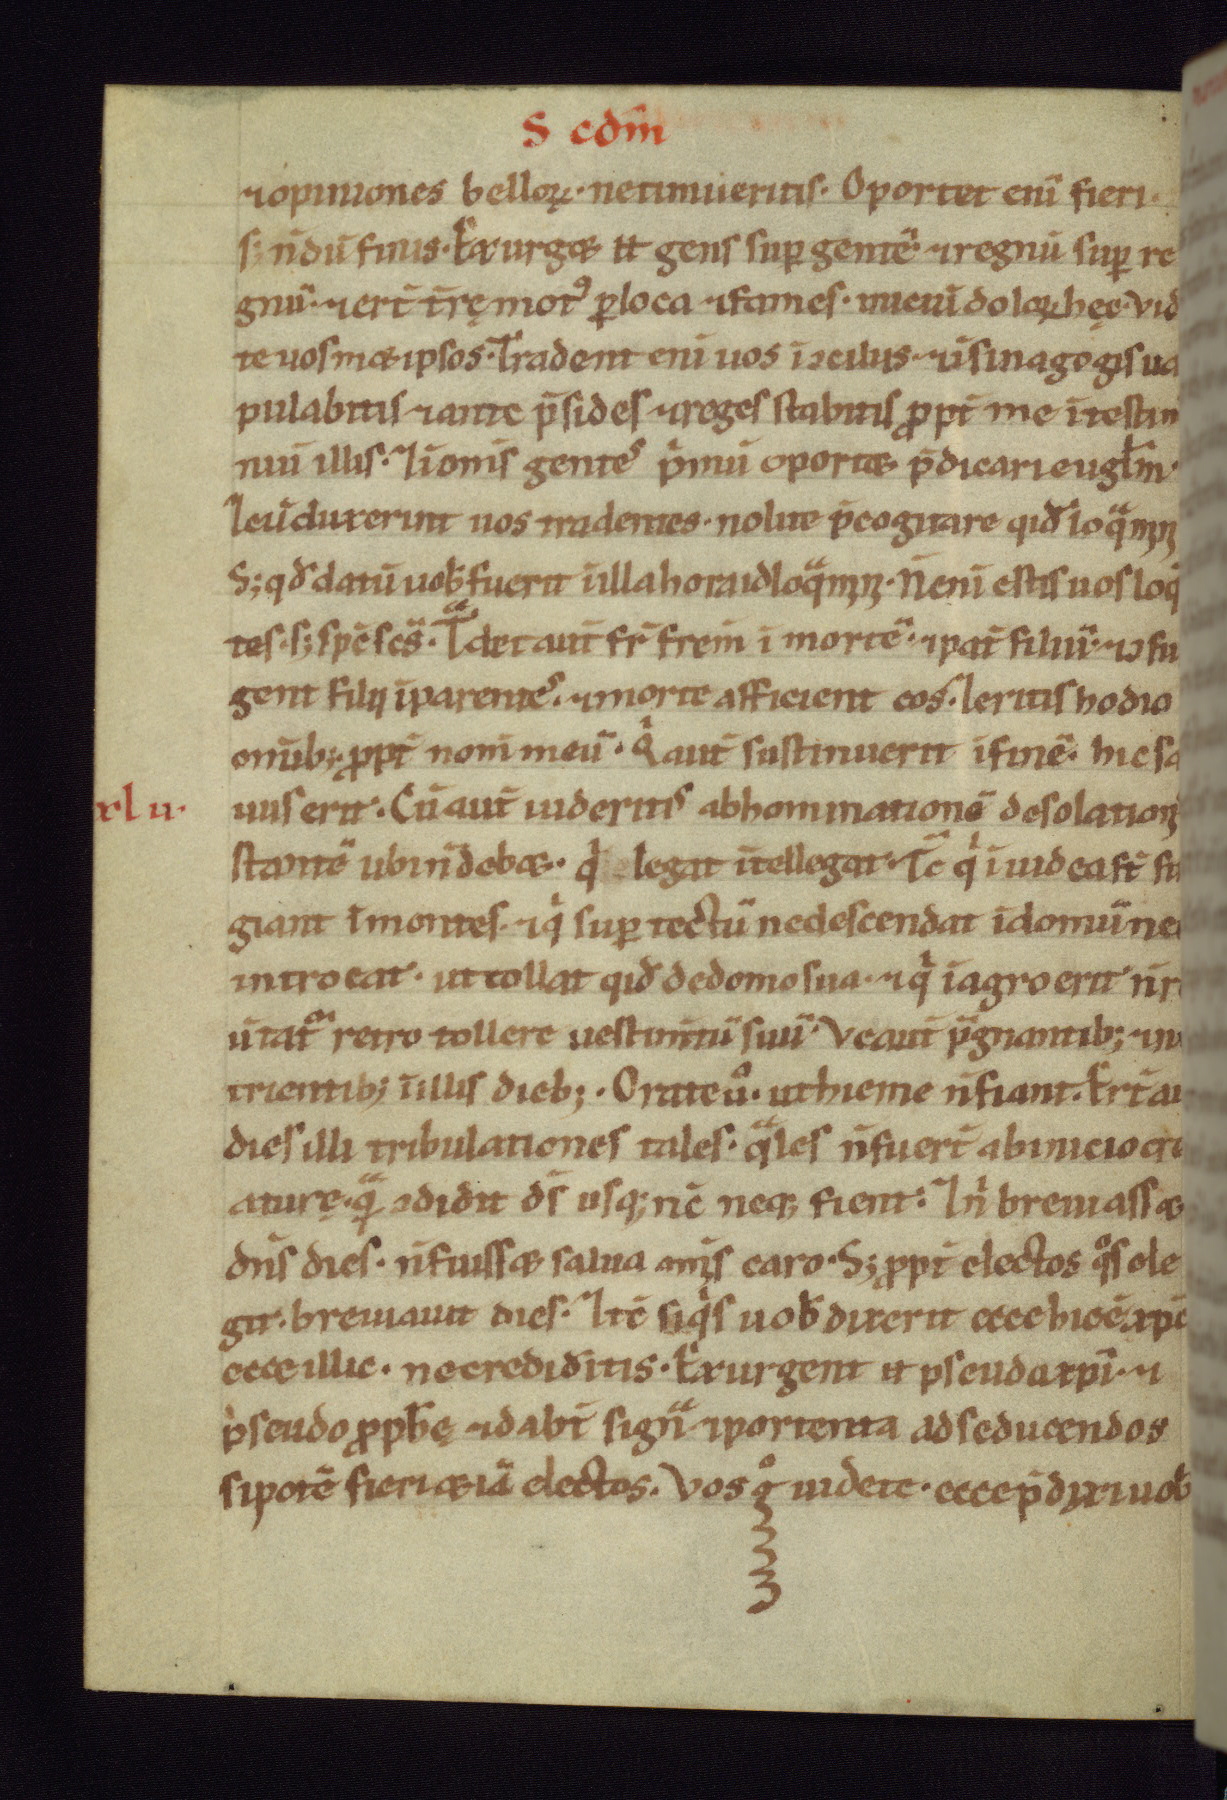 S cdm̄
⁊opiniones belloꝝ· netimueritis· Oportet eni fieri·
s; n̄dū finis· Exurget n̄ gens sup gentē· ⁊regnū sup re
gnū· ⁊ert̄ t̄rę mot᷒ ploca ⁊fames· iniciū doloꝝ hęc· Vid
te uosmetipsos· Tradent eni uos i ↄcilus· ⁊ī sinagogis ua
pulabitis ⁊ante p̄sides ⁊reges stabitis ꝓpt̄ me ī testim
niū illis· Iī om̄s gentes p̄mū oportet p̄dicari eugłm·
Icū duxerint uos tradentes· nolite p̄cogitare qid loqamın
S; qd datū uob̄ fuerit ī illa hora id loqamın· N̄ eni estis uos loq
tes· s; sp̄c sc̄s· Tdet aut̄ fr̄ frēm ī mortē· ⁊pat̄ filiū· ⁊ↄsu
gent filij ī parentes· ⁊morte afficient eos· Ieritis hodio
omīb; ꝓpt̄ nom̄ meū· Qi aut̄ sustinuerit ī finē· hic sa
xlu·
uus erit· Cū aut̄ uideritis abhominationē desolation
stantē ubi n̄ debet· qi legit ītellegat· Tc̄ qi ī iudea st̄ fu
giant ī montes· ⁊qi sup tectū nedescendat ī domū nec
introeat· ut tollat qid dedomo sua· ⁊qi ī agro erit n̄ re
ūtat retro tollere uestimtū suū· Ve aut̄ p̄gnantib; ⁊nu
trientib; ī illis dieb;· Orate ū· ut hieme n̄ fiant· Ert̄ au
dies illi tribulationes tales· qales n̄ fuert̄ ab inicio cre
aturę· q ↄdidit ds̄ usq; nc̄ neq; fient· In̄ breuiasset
dns̄ dies· n̄ fuisset salua om̄is caro· S; ꝓpt̄ electos qos ele
git· breuiauit dies· Itc̄ siqis uob̄ dixerit ecce hic ē xp̄c
ecce illic· ne credideritis· Exurgent n̄ pseudoxp̄i· ⁊
pseudoꝓph̄ę ⁊dabt̄ signa ⁊portenta ad seducendos
si potē fieri etiā electos· Vos go uidete· ecce p̄dixi uob̄